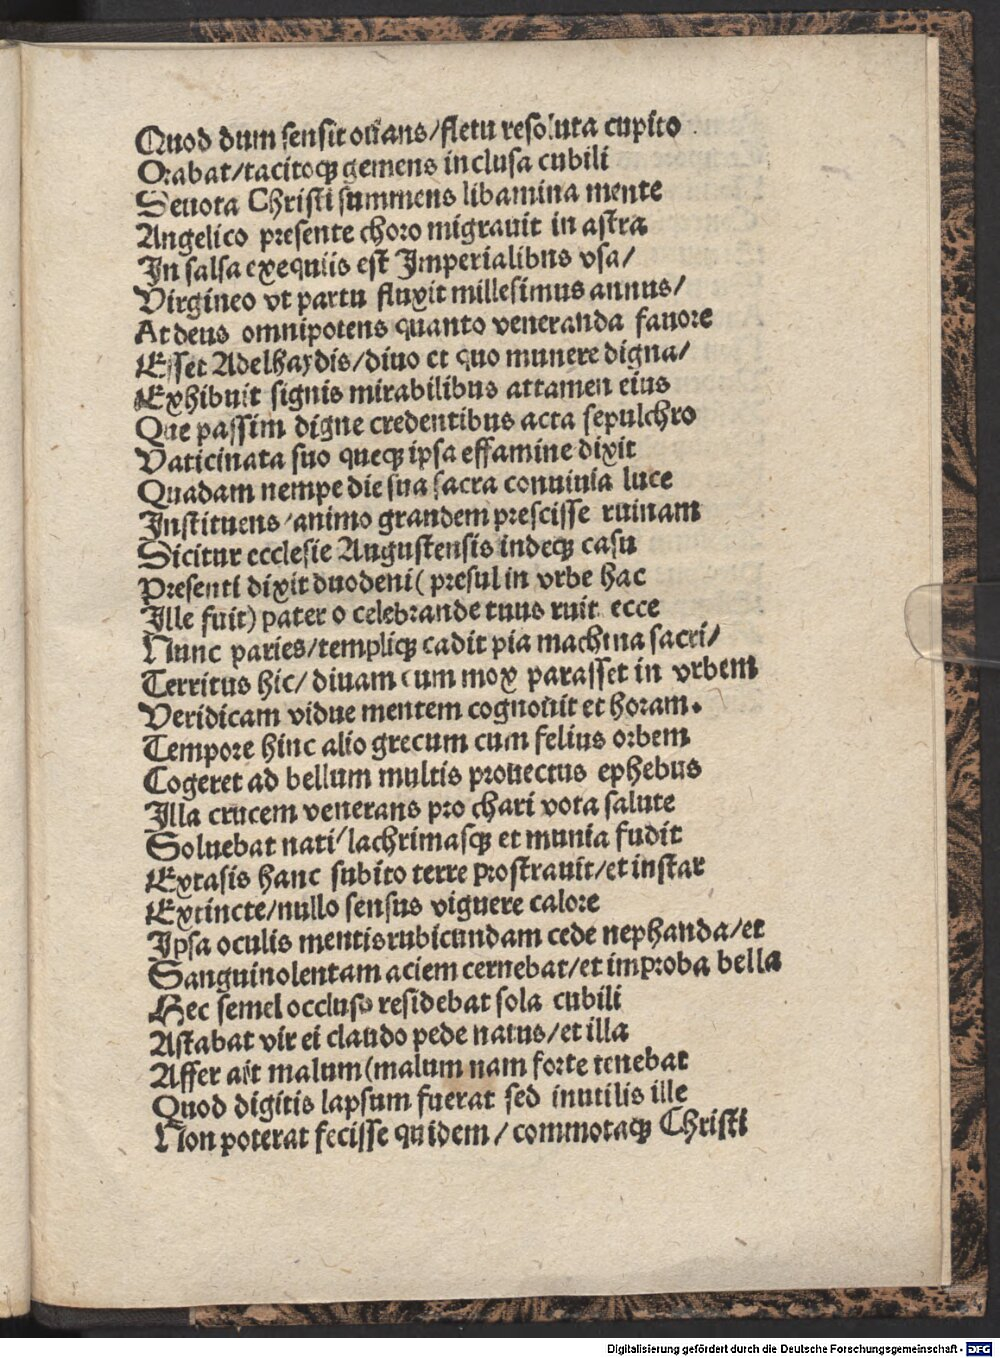 Quod dum sensit ouans/fletu resoluta cupito
Orabat/tacitoqꝫ gemens inclusa cubili
Deuota Christi summens libamina mente
Angelico presente choro migrauit in astra
In salsa exequiis est Imperialibus vsa/
Virgineo vt partu fluxit millesimus annus/
At deus omnipotens quanto veneranda fauore
Esset Adelhaydis/diuo et quo munere digna/
Exhibuit signis mirabilibus attamen eius
Que passim digne credentibus acta sepulchro
Vaticinata suo queqꝫ ipsa effamine dixit
Quadam nempe die sua sacra conuiuia luce
Instituens/animo grandem prescisse ruinam
Dicitur ecclesie Augustensis indeqꝫ casu
Presenti dixit duodeni( presul in vrbe hac
Ille fuit) pater o celebrande tuus ruit ecce
Nunc paries/templiqꝫ cadit pia machina sacri/
Territus hic/ diuam cum mox parasset in vrbem
Veridicam vidue mentem cognouit et horam.
Tempore hinc alio grecum cum felius orbem
Cogeret ad bellum multis prouectus ephebus
Illa crucem venerans pro chari vota salute
Soluebat nati/lachrimasqꝫ et munia fudit
Extasis hanc subito terre prostrauit/et instar
Extincte/nullo sensus viguere calore
Ipsa oculis mentis rubicundam cede nephanda/et
Sanguinolentam aciem cernebat/et improba bella
Hec semel occluso residebat sola cubili
Astabat vir ei claudo pede natus/et illa
Affer ait malum(malum nam forte tenebat
Quod digitis lapsum fuerat sed inutilis ille
Non poterat fecisse quidem/commotaqꝫ Christi
Digitalisierung gefördert durch die Deutsche Forschungsgemeinschaft - DFG